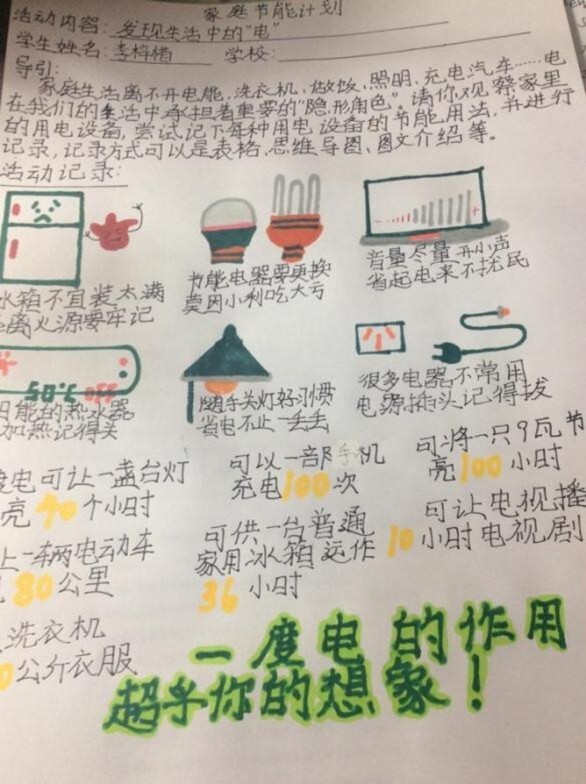 家庭节能计划
活动内容: 发现生活中的"电"
学生姓名: 李梓楷 学校:
导引:
家庭生活离不开电能,洗衣机,做饭,照明,充电汽车……电
在我们的生活中承担着重要的"隐形角色"。请你观察家里
的用电设备,尝试记下每种用电设备的节能用法,并进行
记录,记录方式可以是表格、思维导图、图文介绍等。
活动记录:
冰箱不宜装太满
离火源要牢记
节能电器要更换
莫因小利吃大亏
音量尽量开小声
省起电来不扰民
日能的热水器
加热记得关
随手关灯好习惯
省电不止一丢丢
很多电器不常用
电源插头记得拔
度电可让一盏台灯
亮40个小时
可以一部手机
充电100次
可将一只9瓦节
亮100小时
上一辆电动车
80公里
可供一台普通
家用冰箱运作
36小时
可让电视播
10小时电视剧
洗衣机
0公斤衣服
一度电的作用
超乎你的想象!